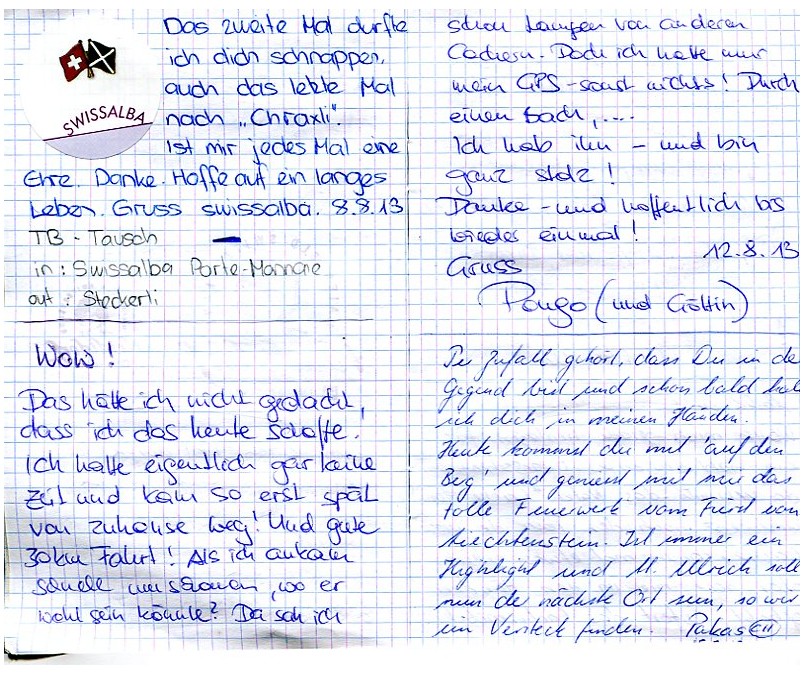 SWISSALBA
Das zweite Mal durfte
ich dich schnappen,
auch das letzte Mal
nach „Chraxli".
Ist mir jedes Mal eine
Ehre. Danke. Hoffe auf ein langes
Leben. Gruss swissalba. 8.8.13
TB - Tausch
in : Swissalba Porte-Monnaie
out : Steckerli
Wow !
Das hätte ich nicht gedacht,
dass ich das heute schaffe.
Ich hatte eigentlich gar keine
Zeit und kam so erst spät
von zuhause weg! Und gute
30km Fahrt! Als ich ankam
schnell umschauen, wo er
wohl sein könnte? Da sah ich
schon Lampen von anderen
Cachern. Doch ich hatte nur
mein GPS - sonst nichts! Durch
einen Bach, ....
Ich hab ihn - und bin
ganz stolz !
Danke - und hoffentlich bis
wieder einmal !
12.8.13
Gruss
Pongo (und Göttin)
Per Zufall gehört, dass Du in de
Gegend bist und schon bald hal
ich dich in meinen Händen.
Heute kommst du mit 'auf den
Berg' und geniesst mit mir das
tolle Feuerwerk vom Fürst von
Liechtenstein. Ist immer ein
Highlight und St. Ulrich soll
nun de nächste Ort sein, so wir
ein Versteck finden. Pakas